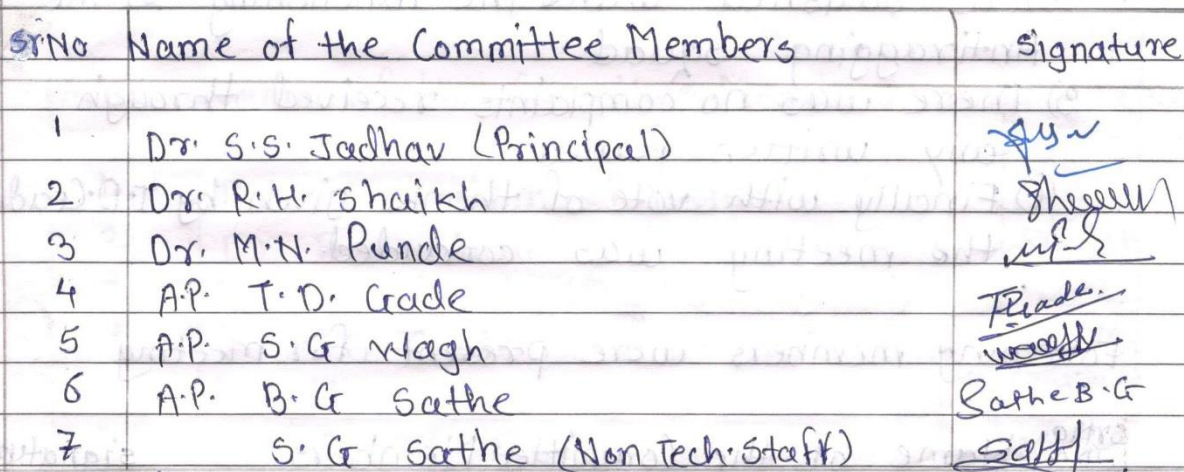 Sr No Name of the Committee Members Signature
1 Dr. S.S. Jadhav (Principal)
2 Dr. R.H. Shaikh
3 Dr. M.N. Punde
4 A.P. T.D. Gade
5 A.P. S.G Wagh
6 A.P. B.G Sathe Sathe B.G
7 S.G Sathe (Non Tech. Staff)